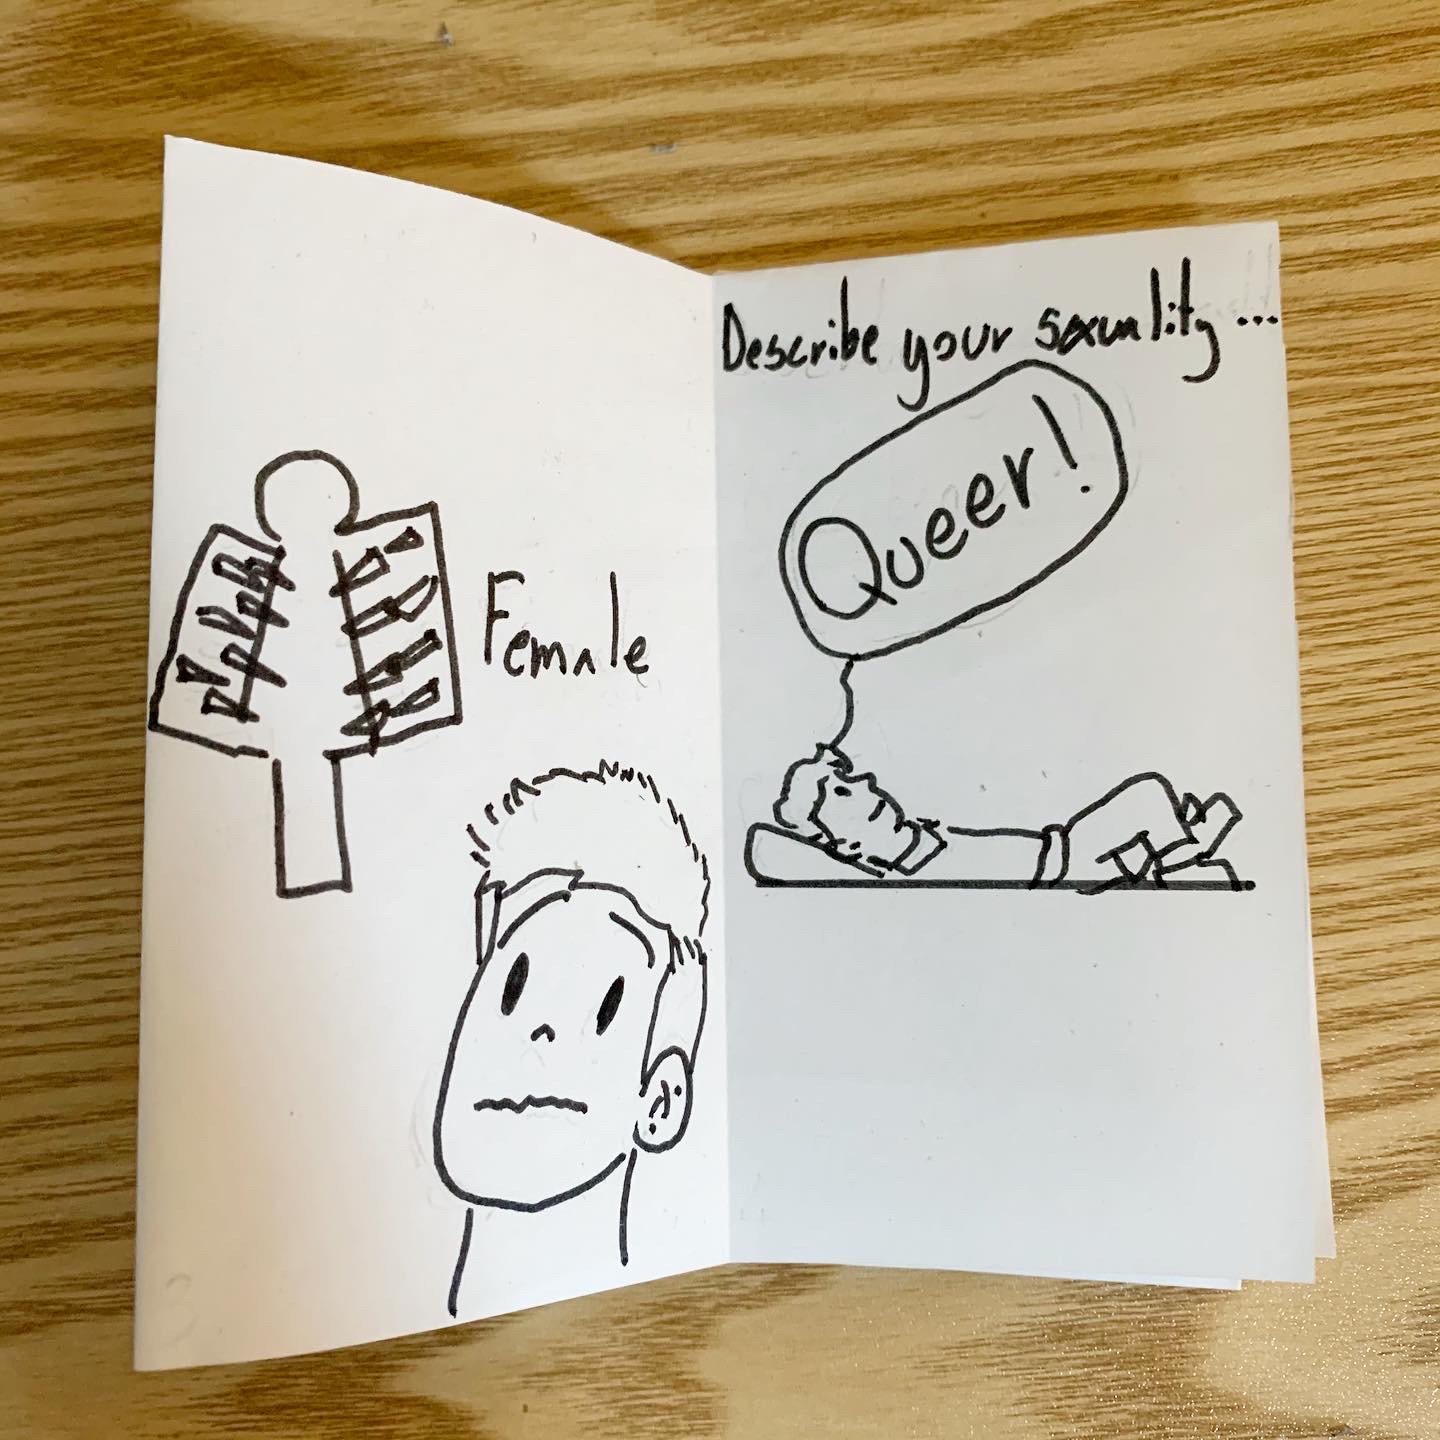 Female
Describe your sexuality...
Queer!